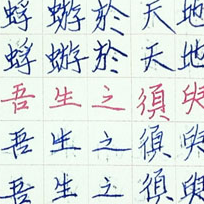 蜉蝣於天地
蜉蝣於天地
吾生之須臾
吾生之須臾
吾生之須臾